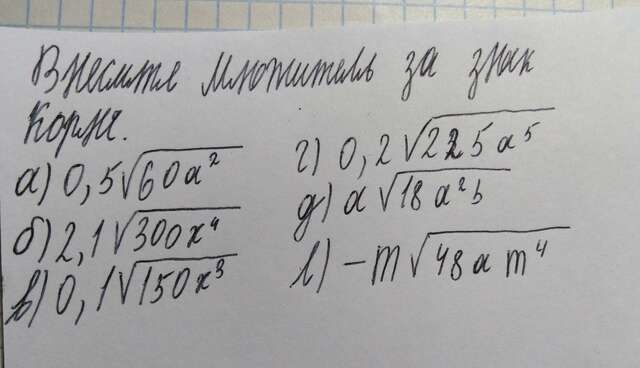 Внесите множитель за знак
корня.
а) 0,5√60a²
б) 2,1√300x⁴
в) 0,1√150x³
г) 0,2√225a⁵
д) a√18a²b
е) -m√48am⁴